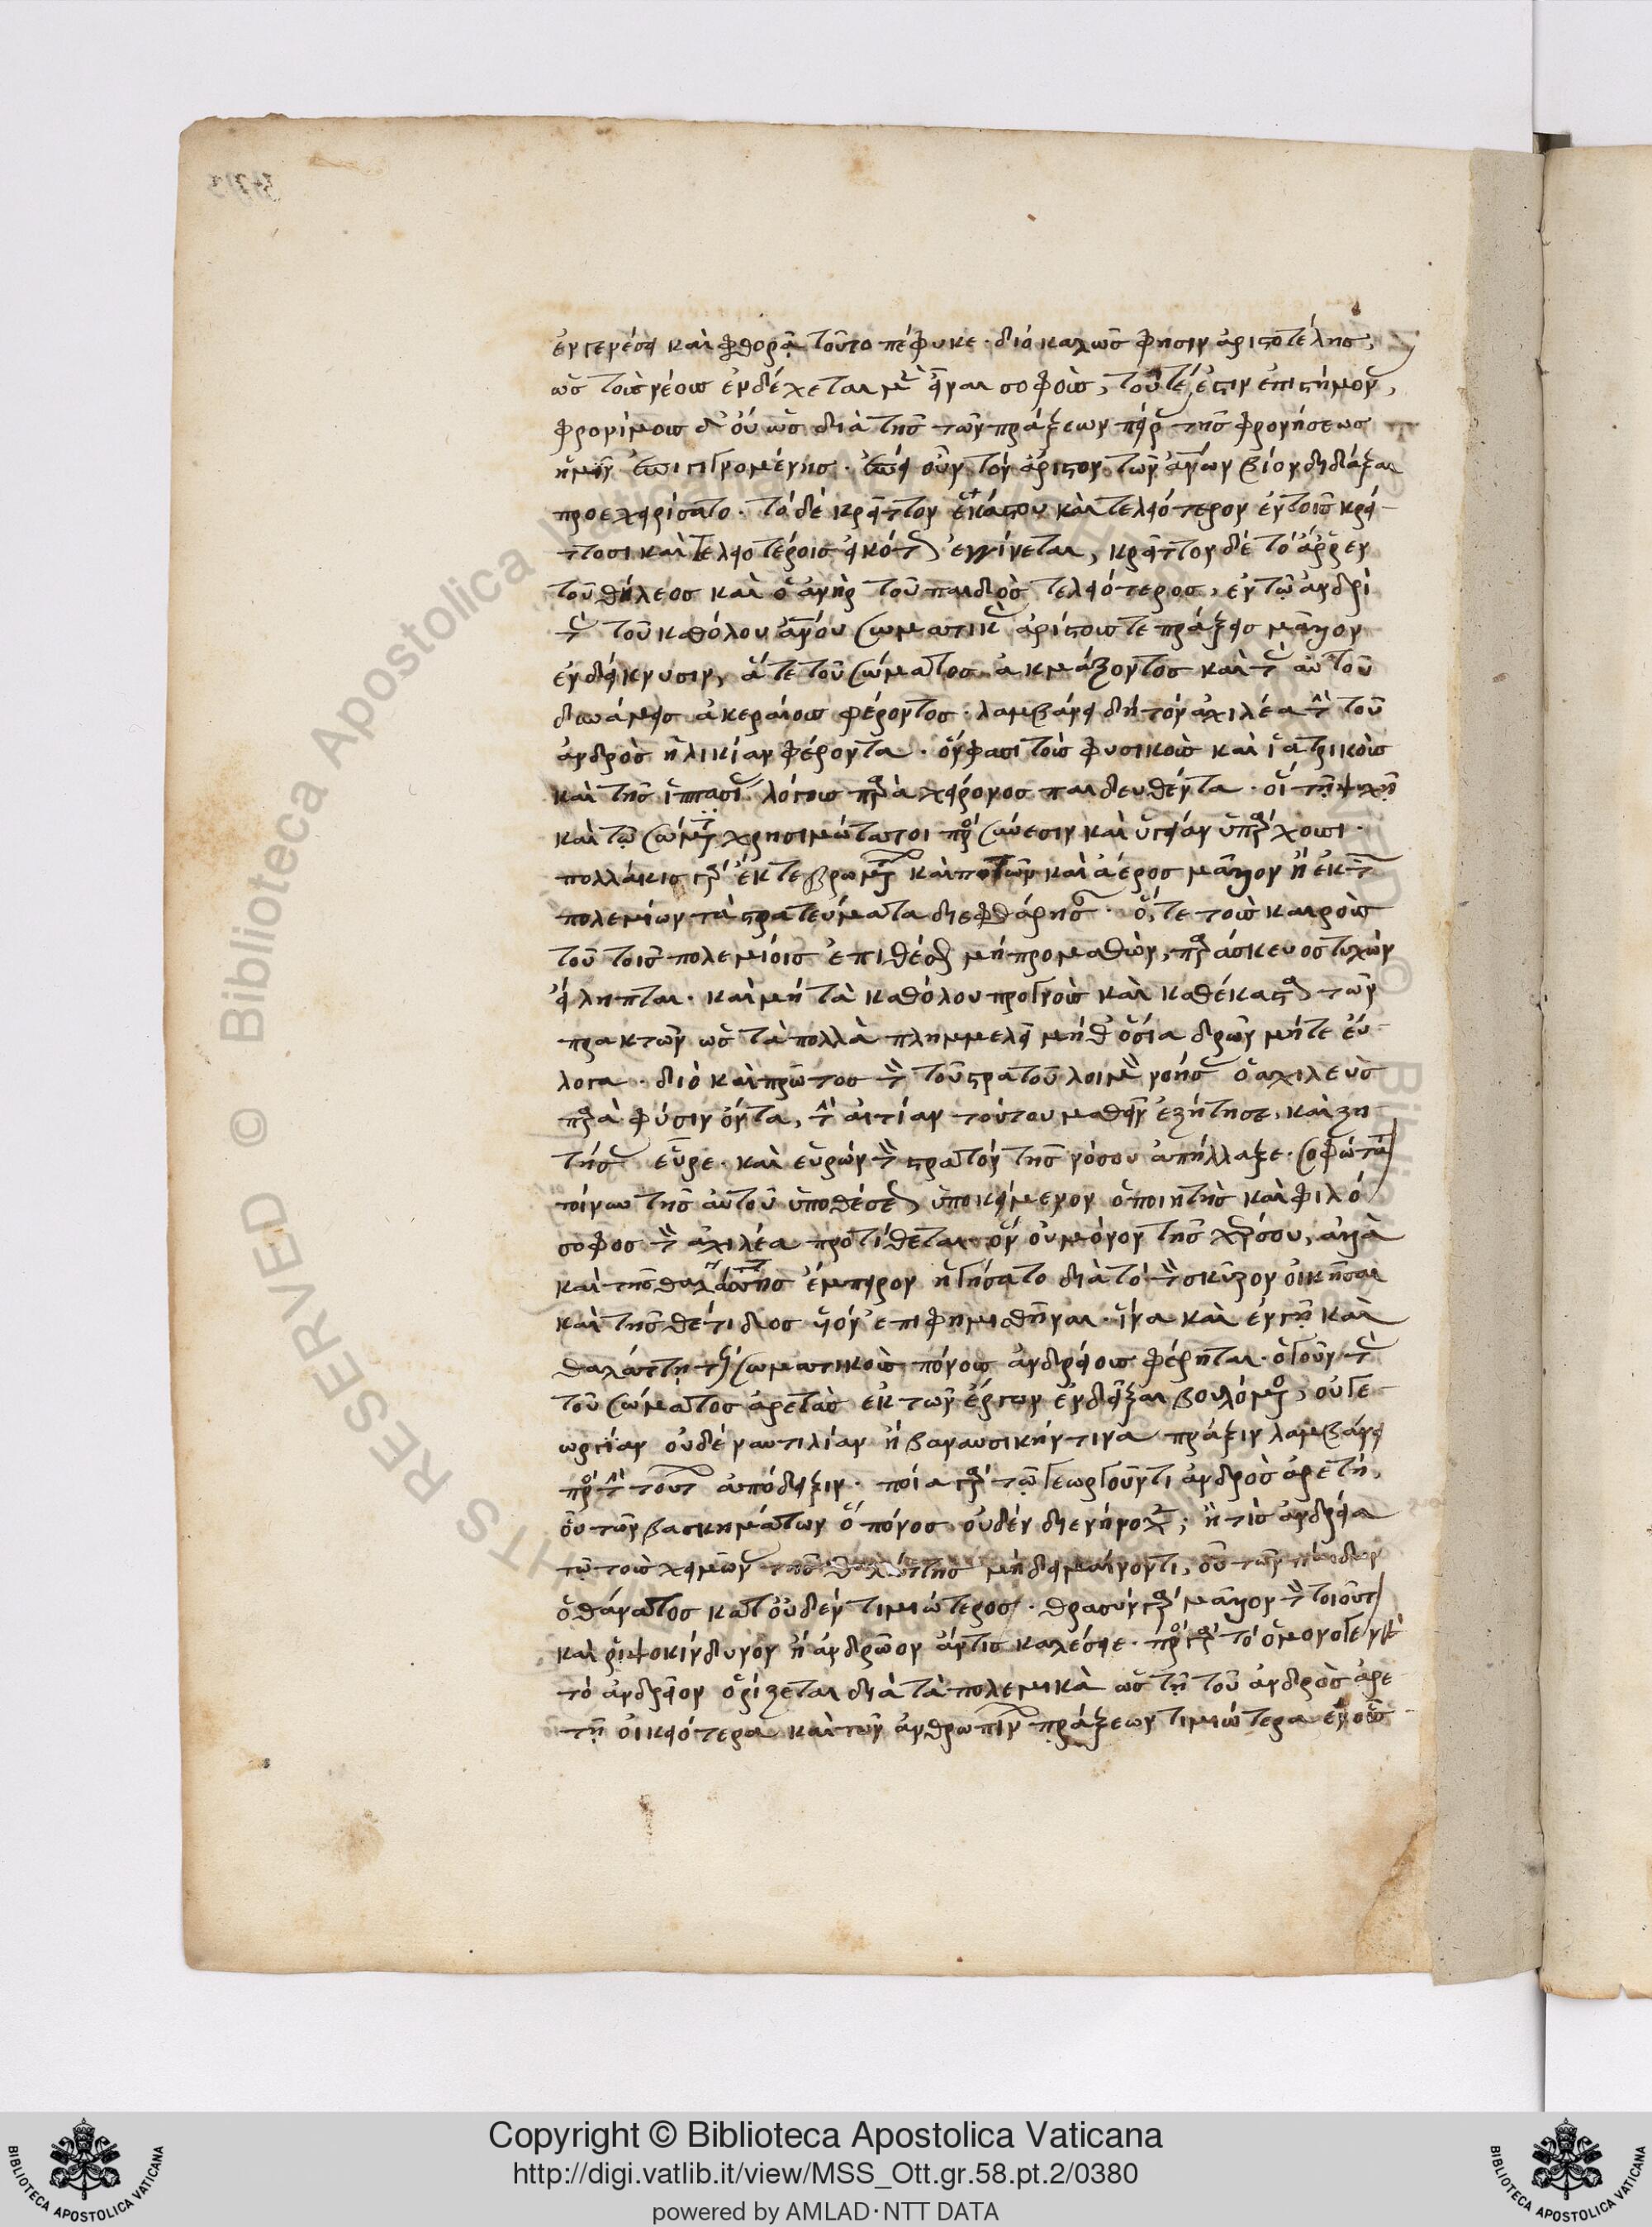 ἐν γενέσει καὶ φθορᾷ τοῦτο πέφυκε· διὸ καλῶς φησιν ἀριστοτέλης,
ὡς τοῖς νέοις ἐνδέχεται μὲν εἶναι σοφοῖς, τουτέστιν ἐπιστήμοσι,
φρονίμοις δ' οὔ πως διὰ τῆς τῶν πράξεων πείρας τῆς φρονήσεως
ἡμῖν ἐπιγινομένης. ἐπεὶ οὖν τὸν ἄριστον τῶν ἀνθρώπων βίον διδάξαι
προεχειρίσατο. τὸ δὲ κρεῖττον ἑκάστου καὶ τελειότερον ἐν τοῖς κρεί
ττοσι καὶ τελειοτέροις εἰκότως ἐγγίνεται, κρεῖττον δὲ τὸ ἄρρεν
τοῦ θήλεος καὶ ὁ ἀνὴρ τοῦ παιδὸς τελειότερος, ἐν τῷ ἀνδρὶ
τὴν τοῦ καθόλου ἀνθρώπου σωματικὴν ἀρίστοις τε πράξεις μᾶλλον
ἐνδείκνυσιν, ἅτε τοῦ σώματος ἀκμάζοντος καὶ τὰς αὐτοῦ
δυνάμεις ἀκεραίους φέροντος. λαμβάνει δὴ τὸν ἀχιλέα τὴν τοῦ
ἀνδρὸς ἡλικίαν φέροντα. ὅν φασι τοῖς φυσικοῖς καὶ ἰατρικοῖς
καὶ τῆς ἱππασίας λόγοις παρὰ χείρονος παιδευθέντα. οἳ τῇ ψυχῇ
καὶ τῷ σώματι χρησιμώτατοι πρὸς σύνεσιν καὶ ὑγείαν ὑπάρχουσι.
πολλάκις γὰρ ἔκ τε βρωμάτων καὶ ποτῶν καὶ ἀέρος μᾶλλον ἢ ἐκ τῶν
πολεμίων τὰ στρατεύματα διεφθάρησαν. ὅ, τε τοὺς καιροὺς
τοῦ τοῖς πολεμίοις ἐπιθέσθαι μὴ προμαθὼν, παράσκευος τυχὼν
εἴληπται. καὶ μὴ τὰ καθόλου προγνοὺς καὶ καθέκαστα τῶν
πρακτῶν ὡς τὰ πολλὰ πλημμελεῖ μήθ' ὅσια δρῶν μήτε εὔ
λογα. διὸ καὶ πρῶτος τὸν τοῦ στρατοῦ λοιμὸν νοήσας ὁ ἀχιλεὺς
παρὰ φύσιν ὄντα, τὴν αἰτίαν τούτου μαθεῖν ἐζήτησε, καὶ ζη
τήσας εὗρε. καὶ εὑρὼν τὸν στρατὸν τῆς νόσου ἀπήλλαξε. σοφώτατον
τοίνυν τῆς αὐτοῦ ὑποθέσεως ὑποκείμενον ὁ ποιητὴς καὶ φιλό
σοφος τὸν ἀχιλέα προτίθεται ὃν οὐ μόνον τῆς χέρσου, ἀλλὰ
καὶ τῆς θαλάττης ἔμπειρον ἡγήσατο διὰ τὸ τὴν σκῦρον οἰκῆσαι
καὶ τῆς θέτιδος υἱὸν ἐπιφημισθῆναι. ἵνα καὶ ἐν γῇ καὶ
θαλάττῃ τοὺς σωματικοὺς πόνους ἀνδρείους φέρηται. ὁ γοῦν τὰς
τοῦ σώματος ἀρετὰς ἐκ τῶν ἔργων ἐνδεῖξαι βουλόμενος, οὐ γε
ωργίαν οὐδὲ ναυτιλίαν ἢ βαναυσικήν τινα πρᾶξιν λαμβάνει
πρὸς τὴν τούτων ἀπόδειξιν. ποία γὰρ τῷ γεωργοῦντι ἀνδρὸς ἀρετή,
οὗ τῶν βοσκημάτων ὁ πόνος οὐδὲν διενήνοχε; ἢ τίς ἀνδρεία
τῷ τοὺς χειμῶνας τῆς θαλάττης μὴ δειμαίνοντι, οὗ τῶν παίδων
ὁ θάνατος κατ' οὐδὲν τιμιώτερος. θρασὺν γὰρ μᾶλλον τὸν τοιοῦτον
καὶ ῥιψοκίνδυνον ἢ ἀνδρεῖον ἄν τις καλέσειε. πρὸς γὰρ τὸ ὁμογενὲς
τὸ ἀνδρεῖον ὁρίζεται διὰ τὰ πολεμικὰ ὡς τῇ τοῦ ἀνδρὸς ἀρε
τῇ οἰκειότερα καὶ τῶν ἀνθρωπίνων πράξεων τιμιώτερα ἐν οἷς
Copyright © Biblioteca Apostolica Vaticana
http://digi.vatlib.it/view/MSS_Ott.gr.58.pt.2/0380
powered by AMLAD·NTT DATA